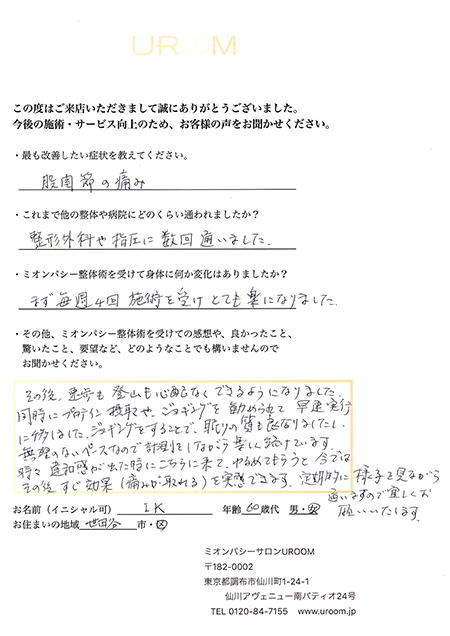 UROOM
この度はご来店いただきまして誠にありがとうございました。
今後の施術・サービス向上のため、お客様の声をお聞かせください。
・最も改善したい症状を教えてください。
股関節の痛み
・これまで他の整体や病院にどのくらい通われましたか？
整形外科や指圧に数回通いました。
・ミオンパシー整体術を受けて身体に何か変化はありましたか？
まず毎週4回施術を受けとても楽になりました。
・その他、ミオンパシー整体術を受けての感想や、良かったこと、
驚いたこと、要望など、どのようなことでも構いませんので
お聞かせください。
その後、徒歩も登山も心配なくできるようになりました。
同時にプロテイン摂取や、ジョギングを勧められて早速実行
に移しました。ジョギングをすることで、眠りの質も良なりましたし、
無理のないペースなので計測をしながら楽しく続けています。
時々違和感が出た時にこちらに来て、ゆるめてもらうと今では
その後すぐ効果(痛みが取れる)を実感できます。定期的に様子を見ながら
通いますので宜しくお
願いいたします。
お名前（イニシャル可） I K 年齢 60 歳代 男・女
お住まいの地域 世田谷 市・区
ミオンパシーサロンUROOM
〒182-0002
東京都調布市仙川町1-24-1
仙川アヴェニュー南パティオ24号
TEL 0120-84-7155 www.uroom.jp